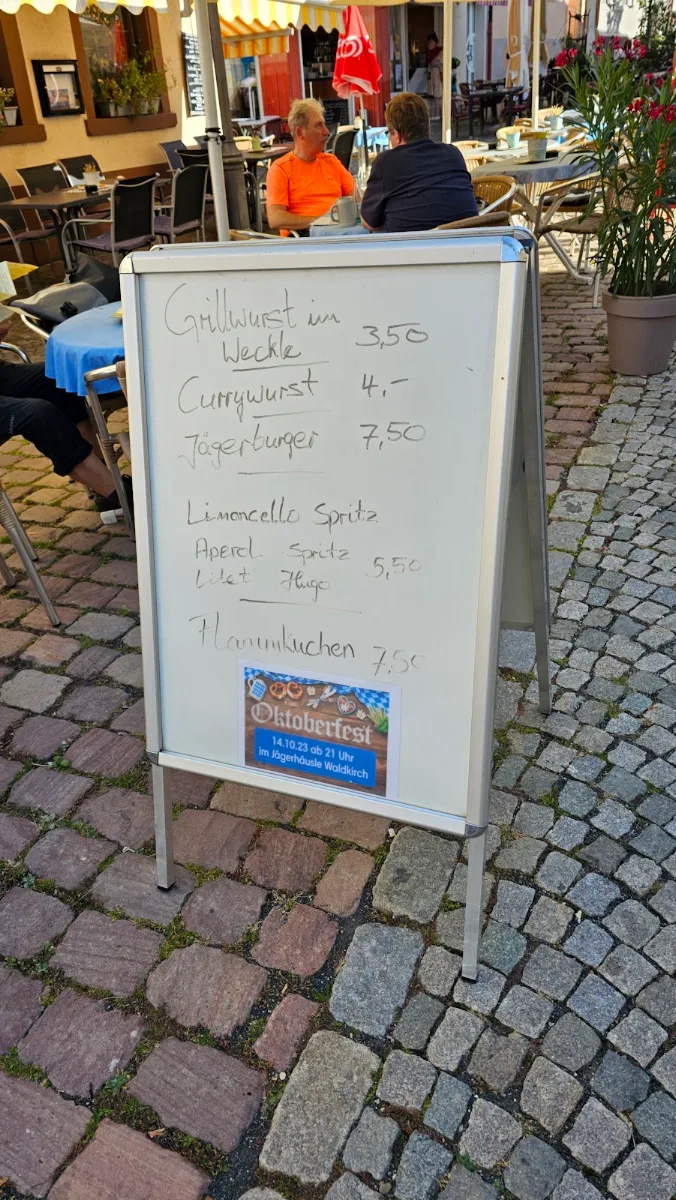 Grillwurst im
Weckle 3,50
Currywurst 4,-
Jägerburger 7,50
Limoncello Spritz
Aperol Spritz 5,50
Lilet Hugo
Flammkuchen 7,50
Oktoberfest
14.10.23 ab 21 Uhr
im Jägerhäusle Waldkirch